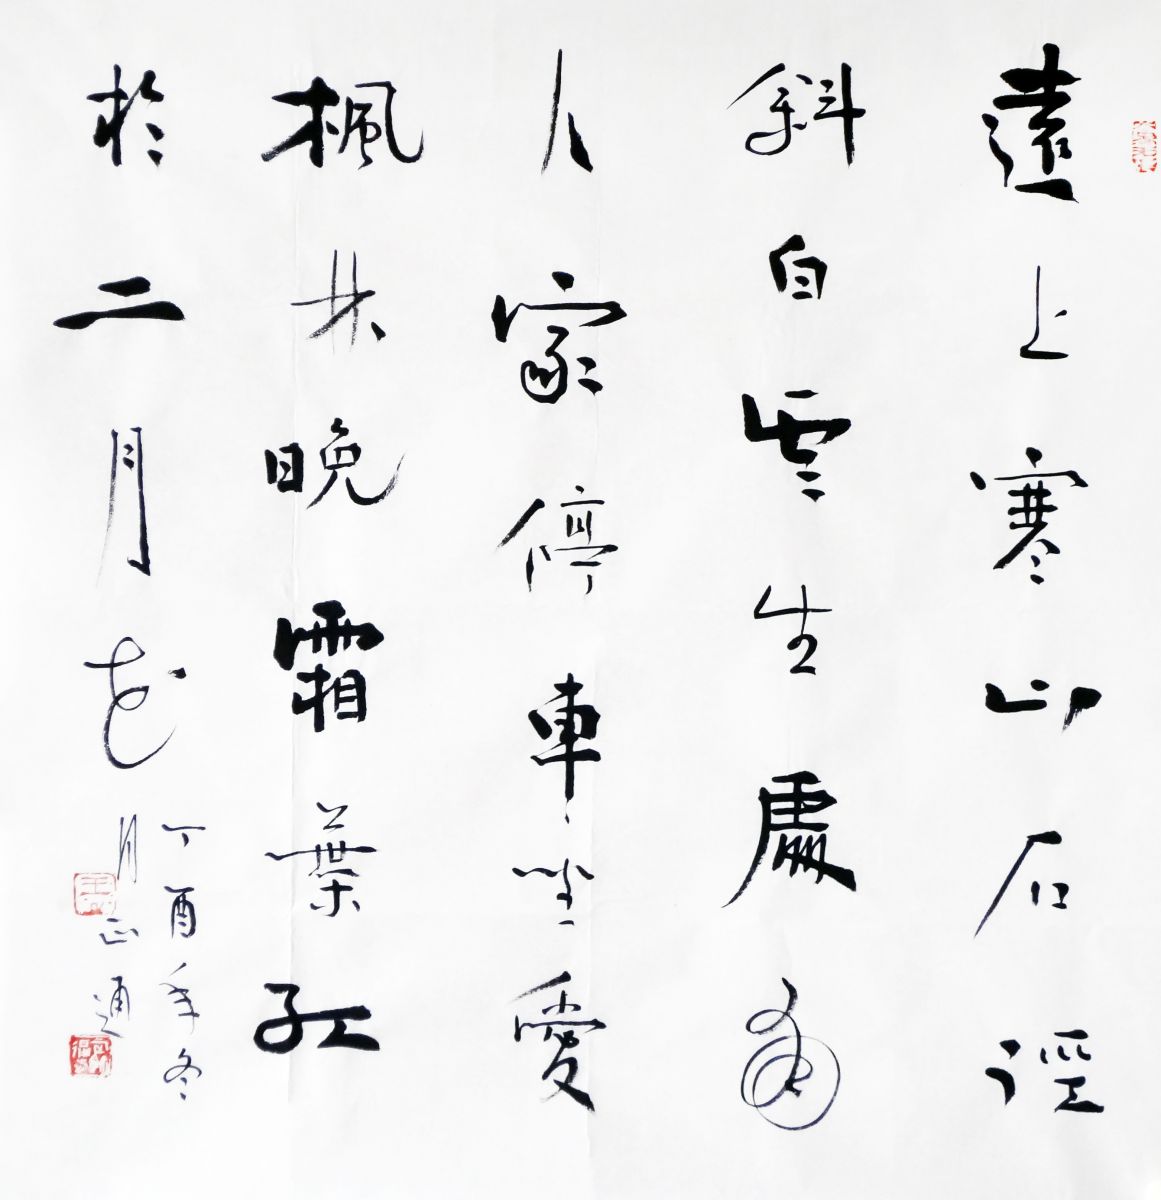 遠上寒山石徑
斜白雲生處有
人家停車坐愛
楓林晚霜葉紅
於二月花
丁酉年冬
月正通